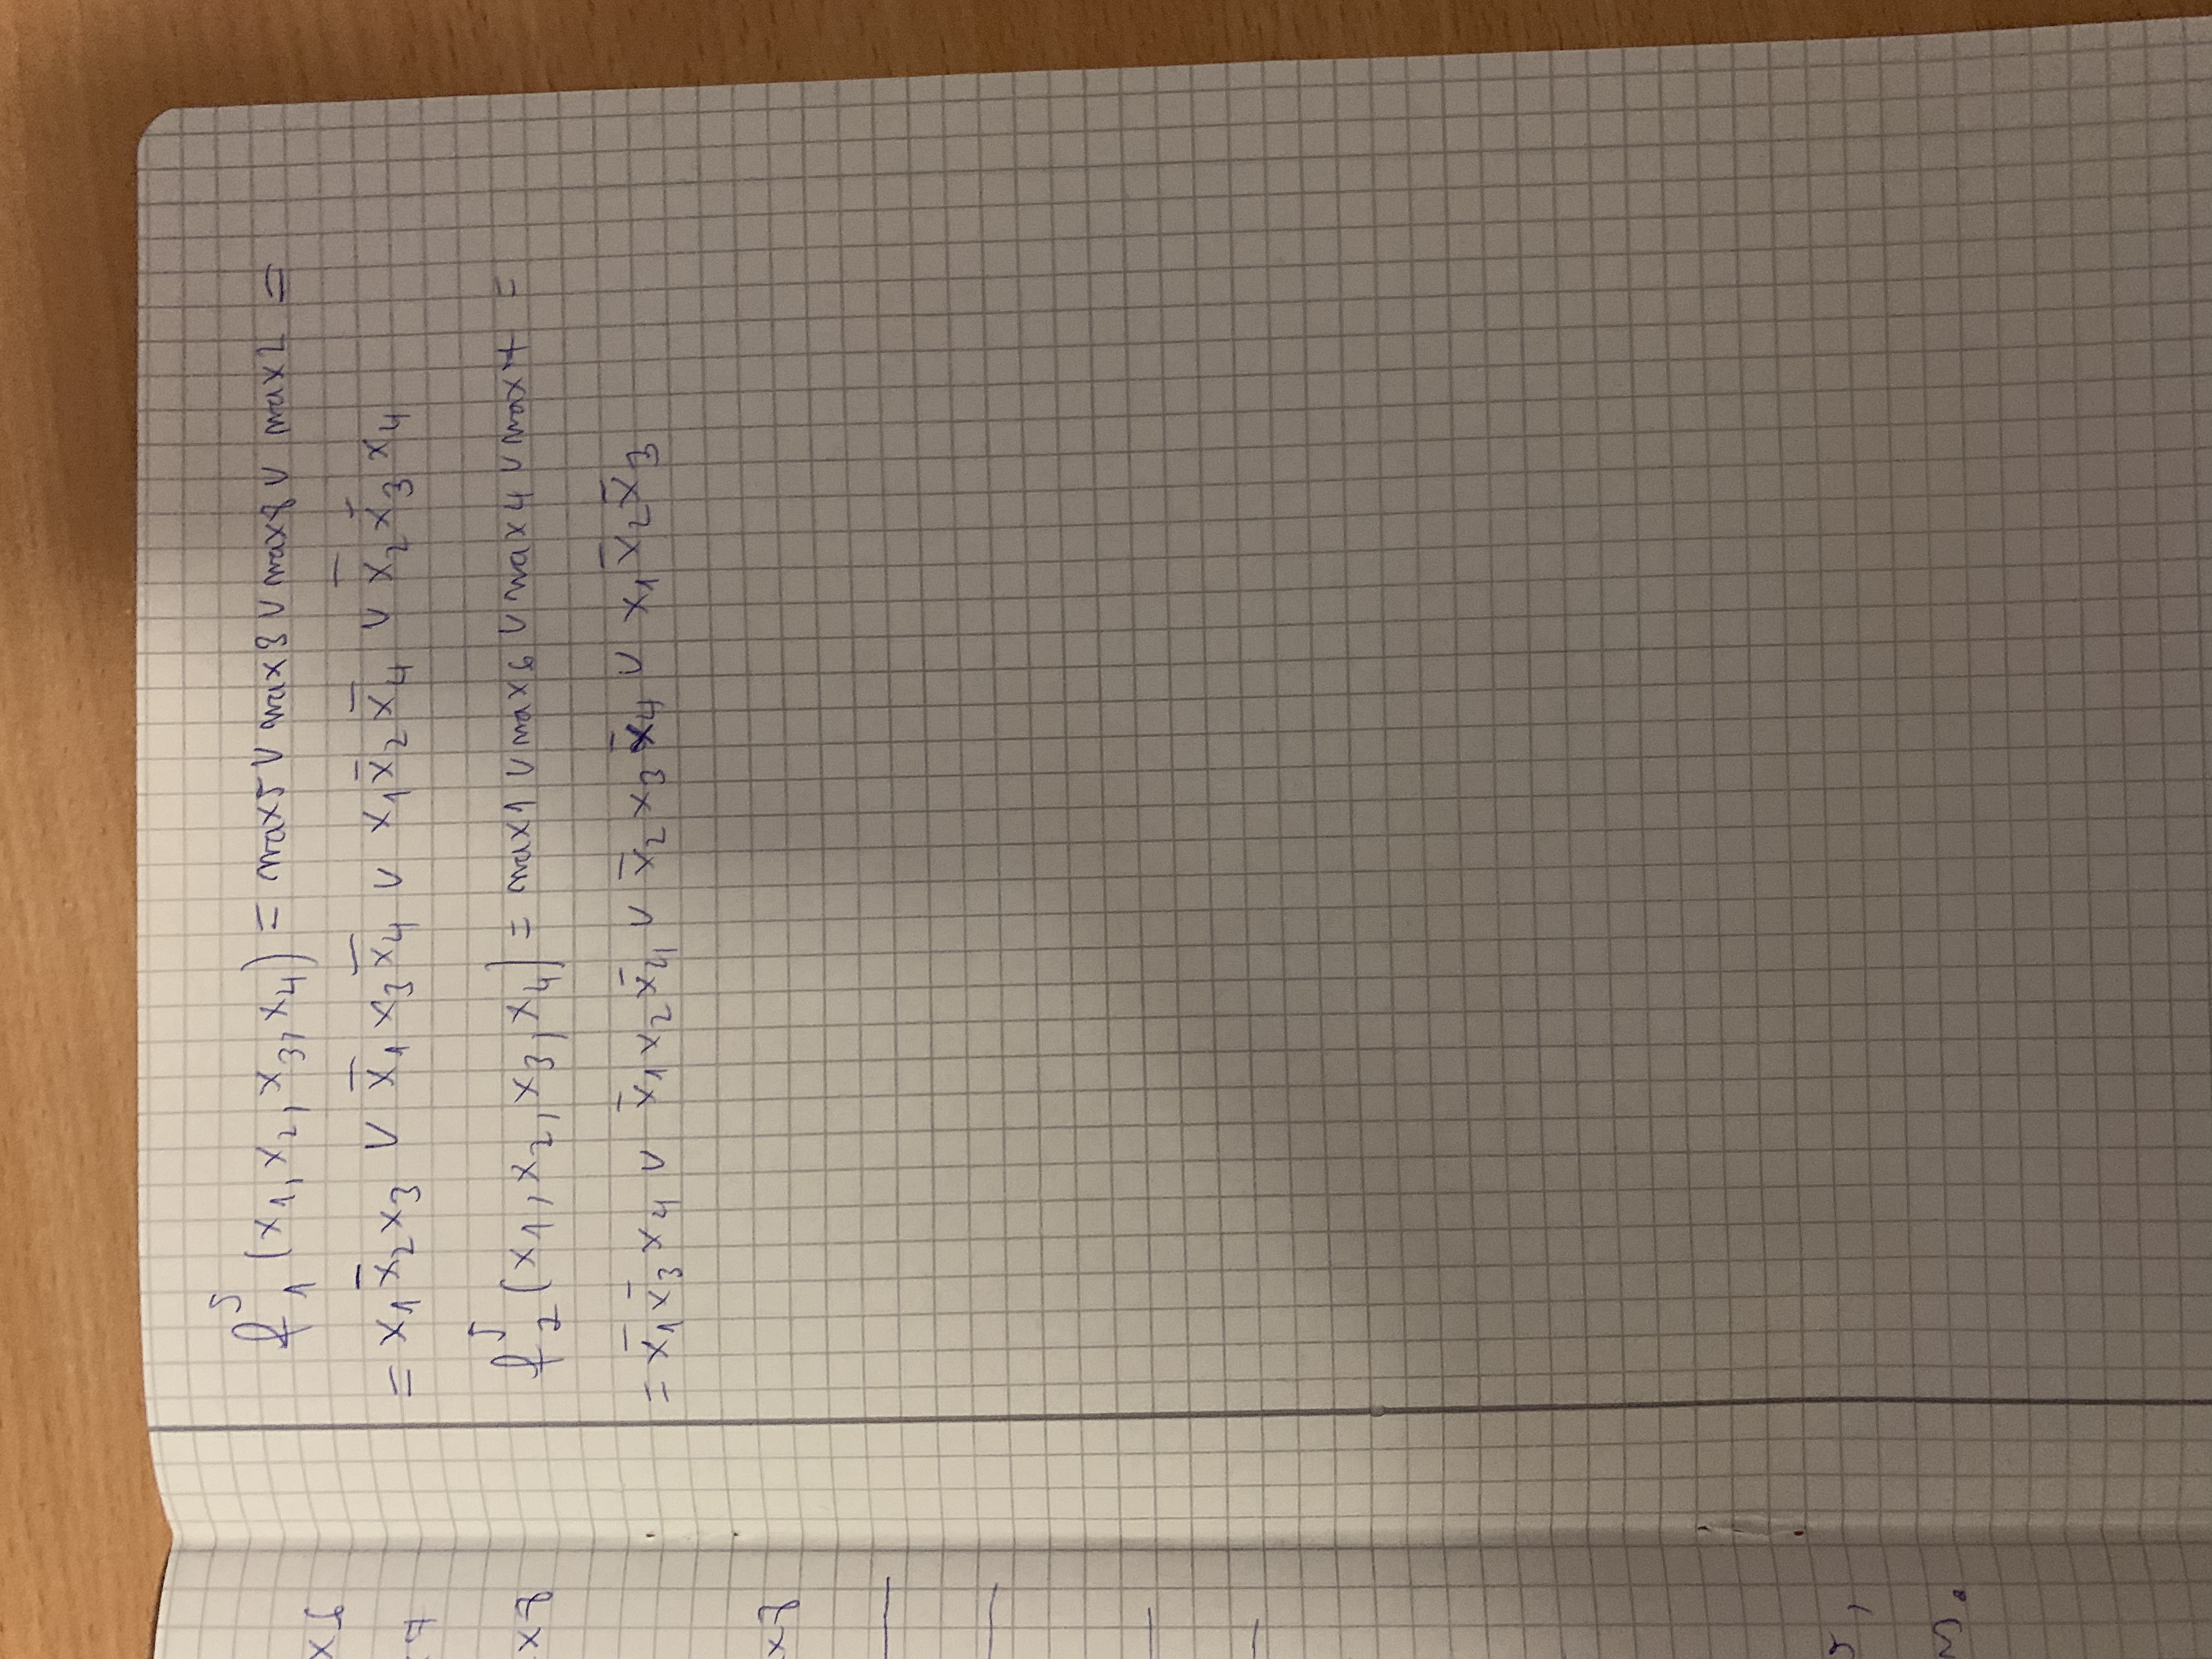 x6
7
x8
x8
v,
m.
f₁⁵ (x₁, x₂, x₃, x₄) = max5 ∨ max3 ∨ max8 ∨ max2 =
= x₁x̄₂x₃ ∨ x̄₁x₃x̄₄ ∨ x₁x̄₂x̄₄ ∨ x̄₂x̄₃x₄
f₂⁵ (x₁, x₂, x₃, x₄) = max1 ∨ max6 ∨ max4 ∨ max7 =
= x̄₁x̄₃x₄ ∨ x̄₁x₂x̄₄ ∨ x̄₂x₃x̄₄ ∨ x₁x̄₂x̄₃